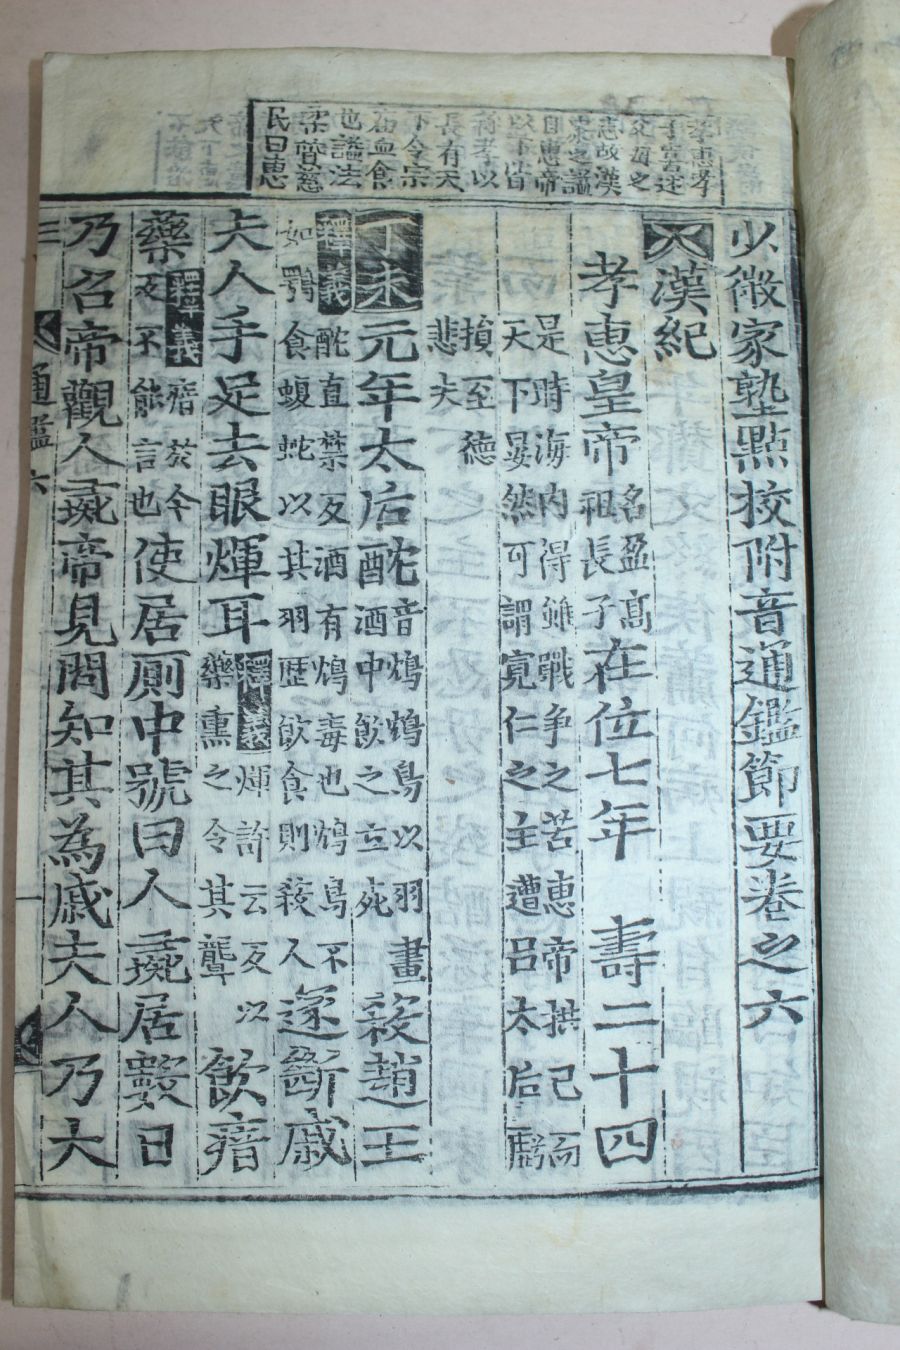 孝惠孝
子善述
父之
志故漢
家之謚
自惠帝
以下皆
稱孝以
長有天
下令宗
庿血食
也謚法
柔質慈
民曰惠
少微家塾點校附音通鑑節要卷之六
漢紀
孝惠皇帝名盈高祖長子在位七年 壽二十四
是時海内得離戰爭之苦惠帝拱己而
天下晏然可謂寬仁之主遭吕太后虧
損至德
悲夫
丁未元年太后酖音鴆鴆鳥以羽畫酒中飮之立死殺趙王
釋義酖直禁反酒有鴆毒也鴆鳥不
如鶚食蝮蛇以其羽歴飮食則殺人遂斷戚
夫人手足去眼煇耳釋義煇許云反以藥熏之令其聾飮瘖
藥釋義瘖於今反不能言也使居厠中號曰人彘居數日
乃召帝觀人彘帝見問知其為戚夫人乃大
通鑑六